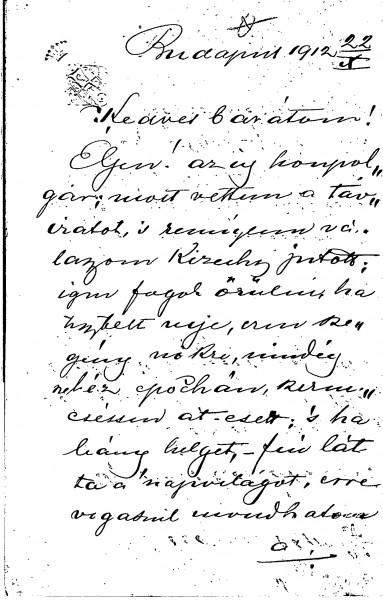 Budapest 1912 22/X
Kedves barátom!
Éljen! az új honpol„
gár; most vettem a táv„
iratot, 's remélem vá„
laszom kézhez jutott;
igen fogok örülni, ha
é, ezen sze„
gény nőkre, mindég
nehéz epochán, szeren„
csésen át-esett, 's ha
leány helyet, – fiú lát„
ta a napvilágot, erre
vigaszul mondhatom
az: